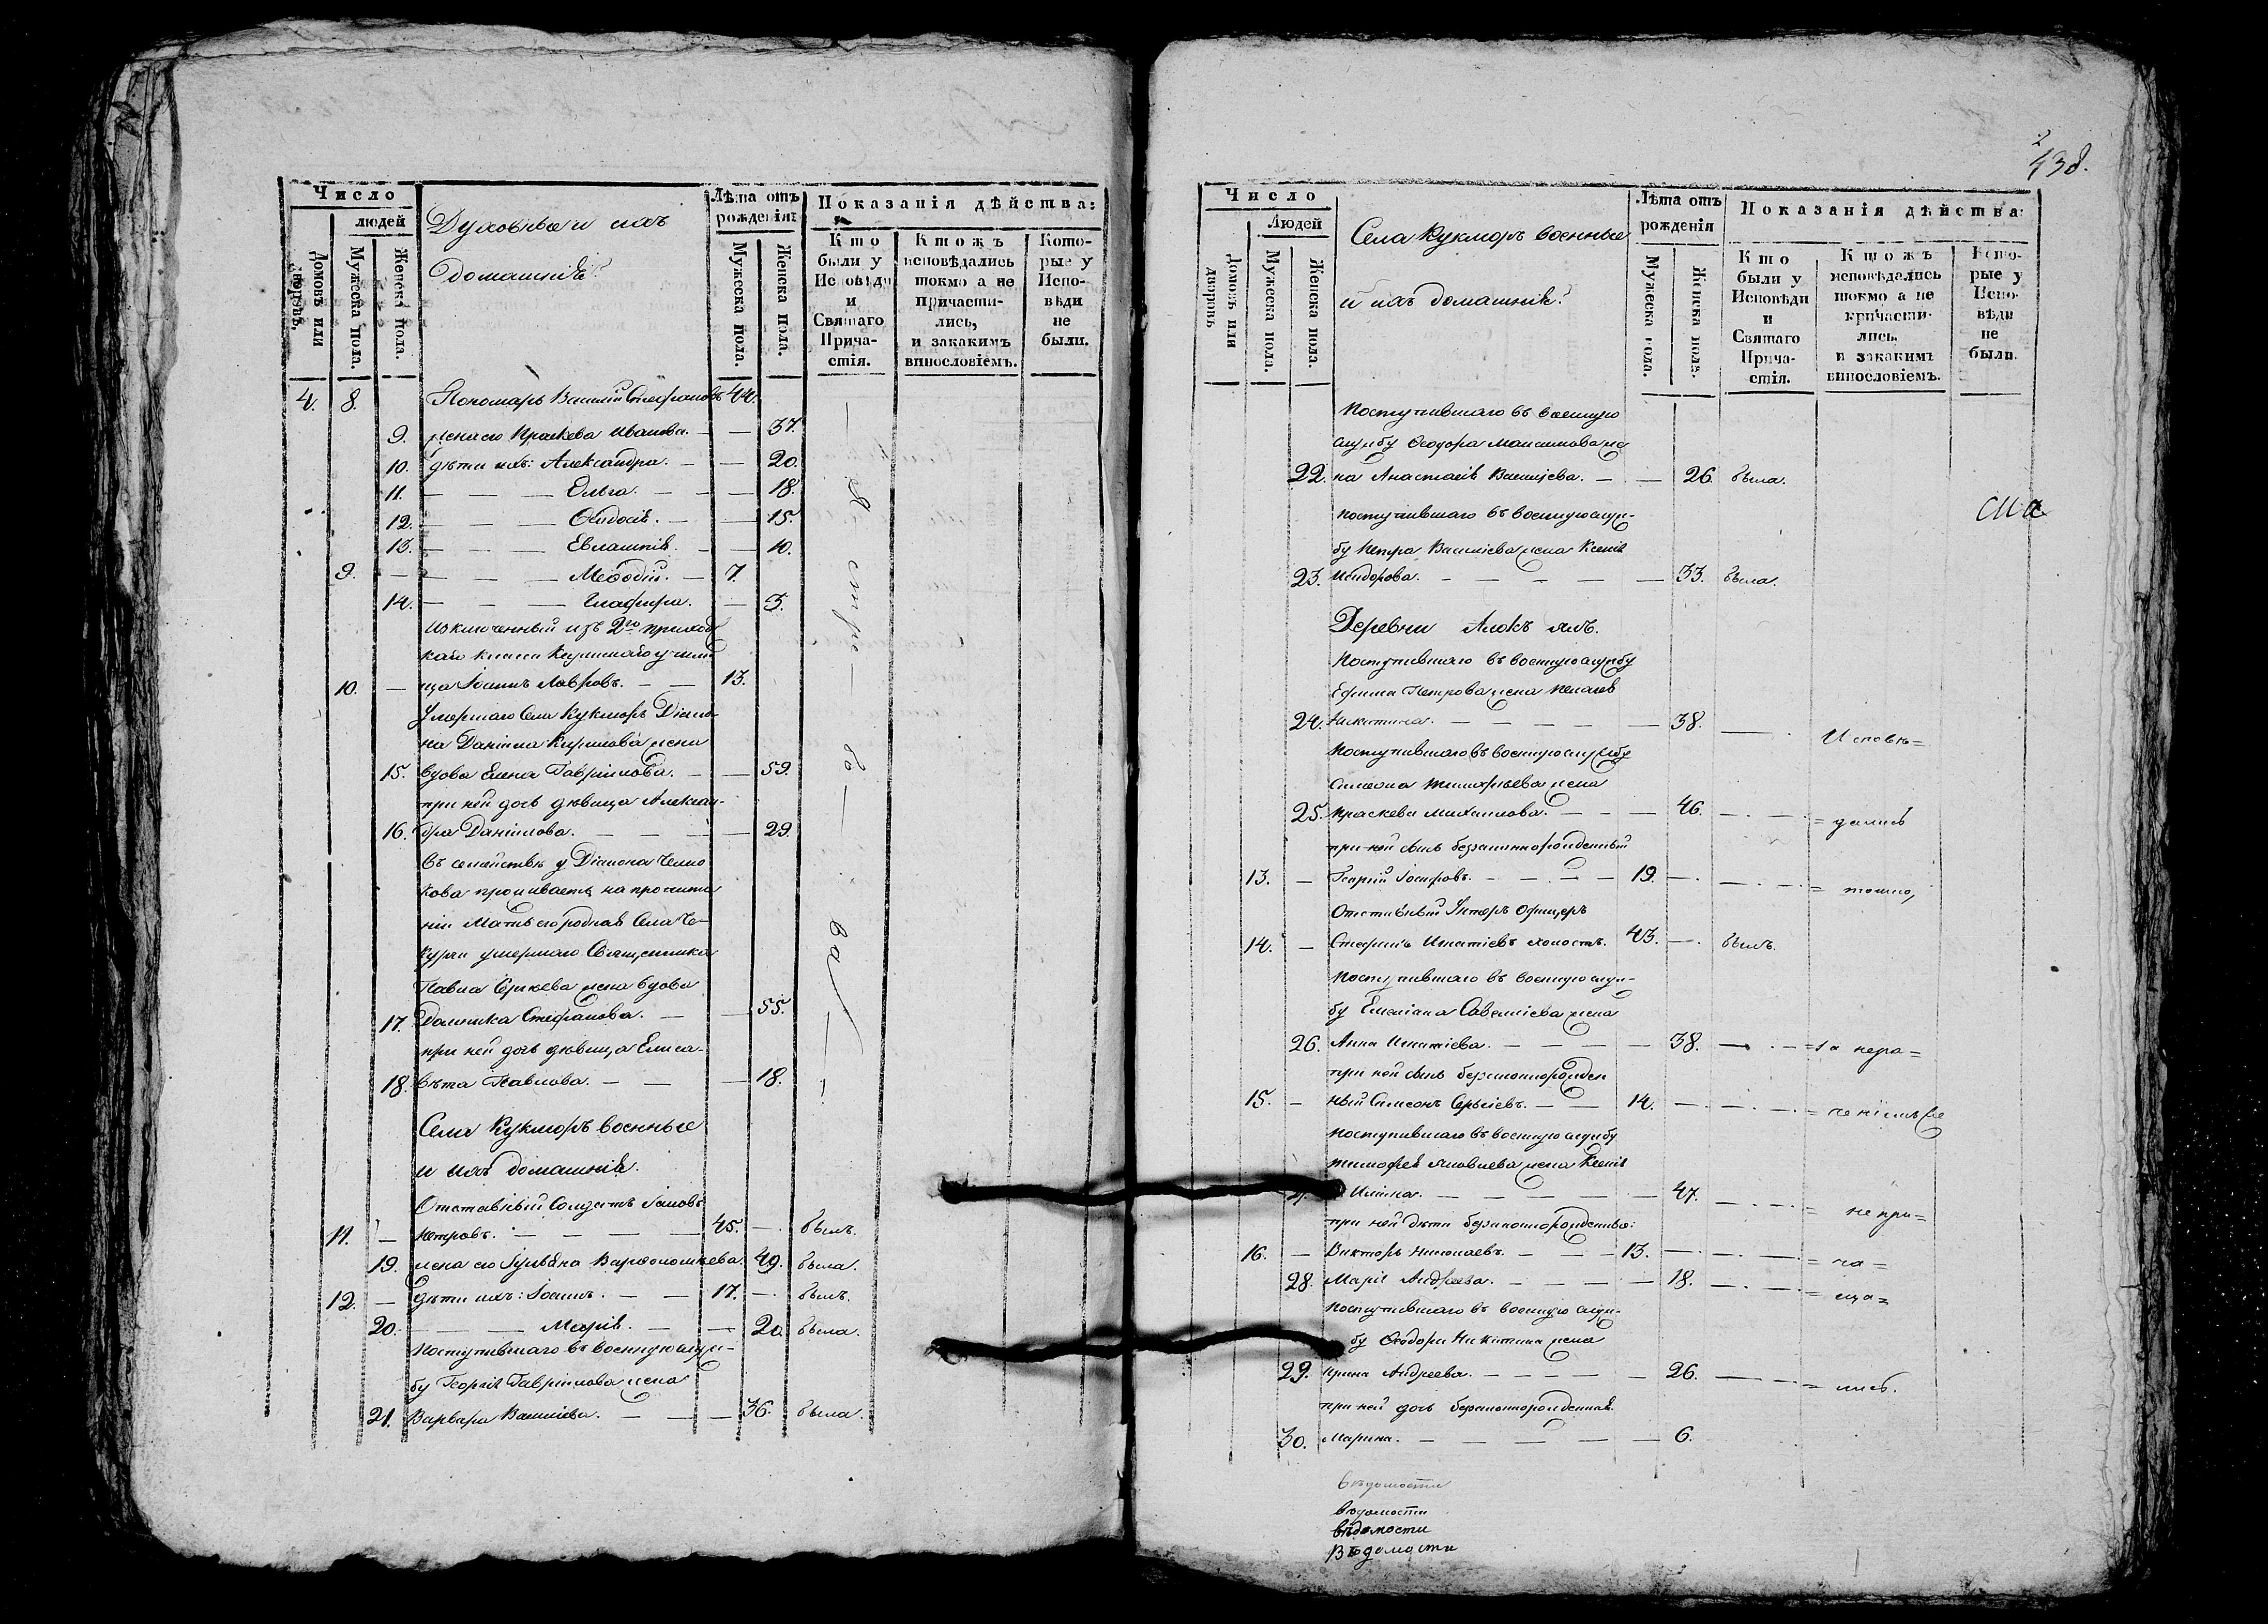 Число
людей
Домовъ или дворовъ.
Мужеска пола.
Женска пола.
Духовные и ихъ
домашнiѣ?
Лѣта отъ рожденiя:
Мужеска пола.
Женска пола.
Показанiя дѣйства:
Кто были у Исповѣди и Святаго Прича-стiя.
Ктожъ исповѣдались токмо а не причасти-лись, и закакимъ винословiемъ.
Кото-рые у Испо-вѣди не были.
4. 8. Пономарь Василiй Стефановъ 44.
9. жена его Праскева Иванова. — — 37.
10. дѣти ихъ: Александра. — — 20.
11. — — — Ольга. — — — 18.
12. — — — Феодосiя. — — 15.
13. — — — Евлампiя. — — 10.
9. — — — — Меѳодiй. — 7.
14. — — — Глафира. — 3.
Изключенный изъ 2го приход
каго класса училищ
10. — ща Iоаннъ Лавровъ. — — 13.
Умершаго Села Кукморъ Дiако
на Данiила Кирилова жена
15. вдова Елена Гаврiилова. — — 59.
при ней дочь дѣвица Алексан-
16. дра Данiилова. — — — — 29.
Въ семействѣ у Дiакона
кова проживаетъ на пропита
нiи Мать его родная Села Че-
курчи умершаго Священника
Павла жена вдова
17. Домника Стефанова. — — 55.
при ней дочь дѣвица Елиса-
18. вета Павлова. — — — 18.
Села Кукморъ военные
и ихъ домашнiѣ.
Отставный Солдатъ Iаковъ
11. — Петровъ. — — — — 45. — былъ.
19. жена его Iулiана Варѳоломеева. 49. была.
12. — дѣти ихъ: Iоаннъ. — — 17. — былъ.
20. — — — Марiя. — — 20. была.
Поступившаго въ военную служ-
бу Георгiя Гаврiилова жена
21. Варвара Василiева. — — — 36. была.
438.
Число
Людей
Домовъ или дворовъ
Мужеска пола.
Женска пола.
Села Кукморъ военные
и ихъ домашнiѣ?
Лѣта отъ рожденiя
Мужеска пола.
Женска пола.
Показанiя дѣйства:
Кто были у Исповѣди и Святаго Прича-стiя.
Ктожъ исповѣдались токмо а не причасти-лись, и закакимъ винословiемъ.
Кото-рые у Испо-вѣди не были.
Поступившаго въ военную
службу Ѳеодора Максимова же
22. на Анастасiя Василiева. — — 26. была.
Поступившаго въ военную служ-
бу Петра Василiева жена Ксенiя
23. Исидорова. — — — — — 33. была.
Деревни Алокъ ялъ.
Поступившаго въ военную службу
Ефима Петрова жена Пелагея
24. Никитина. — — — — — 38. — Исповѣ=
Поступившаго въ военную службу
Симеона жена
25. Праскева Михаилова. — — — 46. — = дались
при ней сынъ беззаконнорожденный
13. — Георгiй Iосифовъ. — — — — 19. — = токмо,
Отставный Унтеръ Офицеръ
14. — Стефанъ Игнатiевъ холостъ. 43. — былъ.
Поступившаго въ военную служ-
бу Емелiана Савелiева жена
26. Анна Игнатiева. — — — — 38. —
при ней сынъ беззаконнорожден
15. — ный Симеонъ Сергiевъ. — — 14. —
Поступившаго въ военную службу
Тимофея Яковлева жена Ксенiя
Ильина. — — — — — 47. — = не при=
при ней дѣти беззаконнорожденные:
16. — Викторъ Николаевъ. — — — 13. —
28. Марiя Андреева. — — — — 18. — = ща=
Поступившаго въ военную служ-
бу Ѳеодора Никитина жена
29. Ирина Андреева. — — — — 26. — = лись.
при ней дочь беззаконнорожденная
30. Марина. — — — — — 6.
вѣдомости
вѣдомости
вѣдомости
Вѣдомости